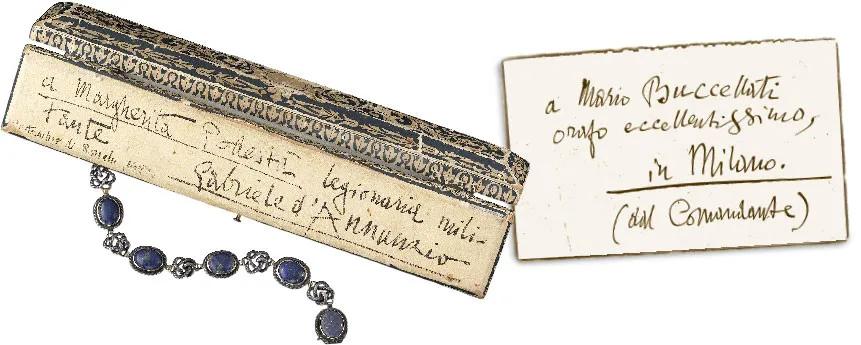 a Margherita Podesti legionaria mili-
tante
Gabriele d'Annunzio
a Mario Buccellati
orafo eccellentissimo,
in Milano.
(dal Comandante)